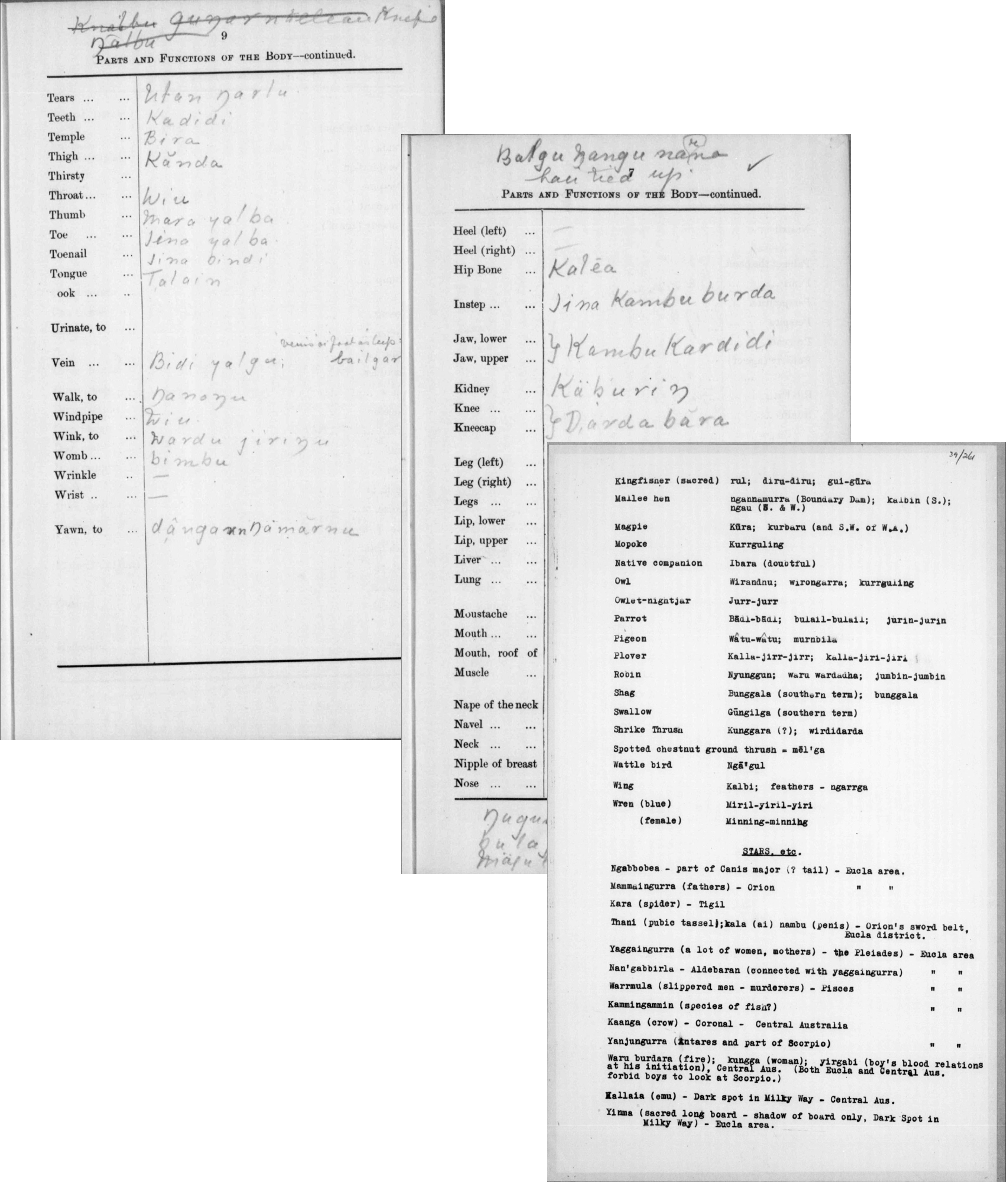 9
PARTS AND FUNCTIONS OF THE BODY—continued.
Tears ... ...
Teeth ... ... Kadidi
Temple ... Bira
Thigh ... ... Kănda
Thirsty ...
Throat ... ... Wiu
Thumb ... Mara yalba
Toe ... ... Jina yalba
Toenail ... Jina bindi
Tongue ... Talain
ook ... ..
Urinate, to ...
Vein ... ... Bidi yalgu; bailgar
Walk, to ...
Windpipe ... Wiu
Wink, to ... Wardu
Womb ... ... bimbu
Wrinkle ... —
Wrist .. ... —
Yawn, to ...
Balgu
tied up
7
PARTS AND FUNCTIONS OF THE BODY—continued.
Heel (left) ... —
Heel (right) ... —
Hip Bone ... Kalēa
Instep ... ... Jina Kambu burda
Jaw, lower ... } Kambu Kardidi
Jaw, upper ...
Kidney ...
Knee ... ...
Kneecap ...
Leg (left) ...
Leg (right) ...
Legs ... ...
Lip, lower ...
Lip, upper ...
Liver ... ...
Lung ... ...
Moustache ...
Mouth ... ...
Mouth, roof of
Muscle ...
Nape of the neck
Navel ... ...
Neck ... ...
Nipple of breast
Nose ... ...
39/261
Kingfisher (sacred) rul; diru-diru; gui-gūra
Mallee hen ngannamurra (Boundary Dam); kalbin (S.);
ngau (S. & W.)
Magpie Kūra; kurbaru (and S.W. of W.A.)
Mopoke Kurrguling
Native companion Ibara (doubtful)
Owl Wirandnu; wirongarra; kurrguling
Owlet-nightjar Jurr-jurr
Parrot Bādi-bādi; bulail-bulail; jurin-jurin
Pigeon Wâtu-wâtu; murnbila
Plover Kalla-jirr-jirr; kalla-jiri-jiri
Robin Nyunggun; waru wardadha; jumbin-jumbin
Shag Bunggala (southern term); bunggala
Swallow Gūngilga (southern term)
Shrike Thrush Kunggara (?); wirdidarda
Spotted chestnut ground thrush = mĕl'ga
Wattle bird Ngā'gul
Wing Kalbi; feathers - ngarrga
Wren (blue) Miril-yiril-yiri
(female) Minning-minning
STARS, etc.
Ngabbobea - part of Canis major (? tail) - Eucla area.
Mammaingurra (fathers) - Orion " "
Kara (spider) - Tigil
Thani (pubic tassel);kala (ai) nambu (penis) - Orion's sword belt,
Eucla district.
Yaggaingurra (a lot of women, mothers) - the Pleiades) - Eucla area
Nan'gabbirla - Aldebaran (connected with yaggaingurra) " "
Warrmula (slippered men - murderers) - Pisces " "
Kammingammin (species of fish?) " "
Kaanga (crow) - Coronal - Central Australia
Yanjungurra (Antares and part of Scorpio) " "
Waru burdara (fire); kungga (woman); yirgabi (boy's blood relations
at his initiation), Central Aus. (Both Eucla and Central Aus.
forbid boys to look at Scorpio.)
Kallaia (emu) - Dark spot in Milky Way - Central Aus.
Yinma (sacred long board - shadow of board only, Dark Spot in
Milky Way) - Eucla area.